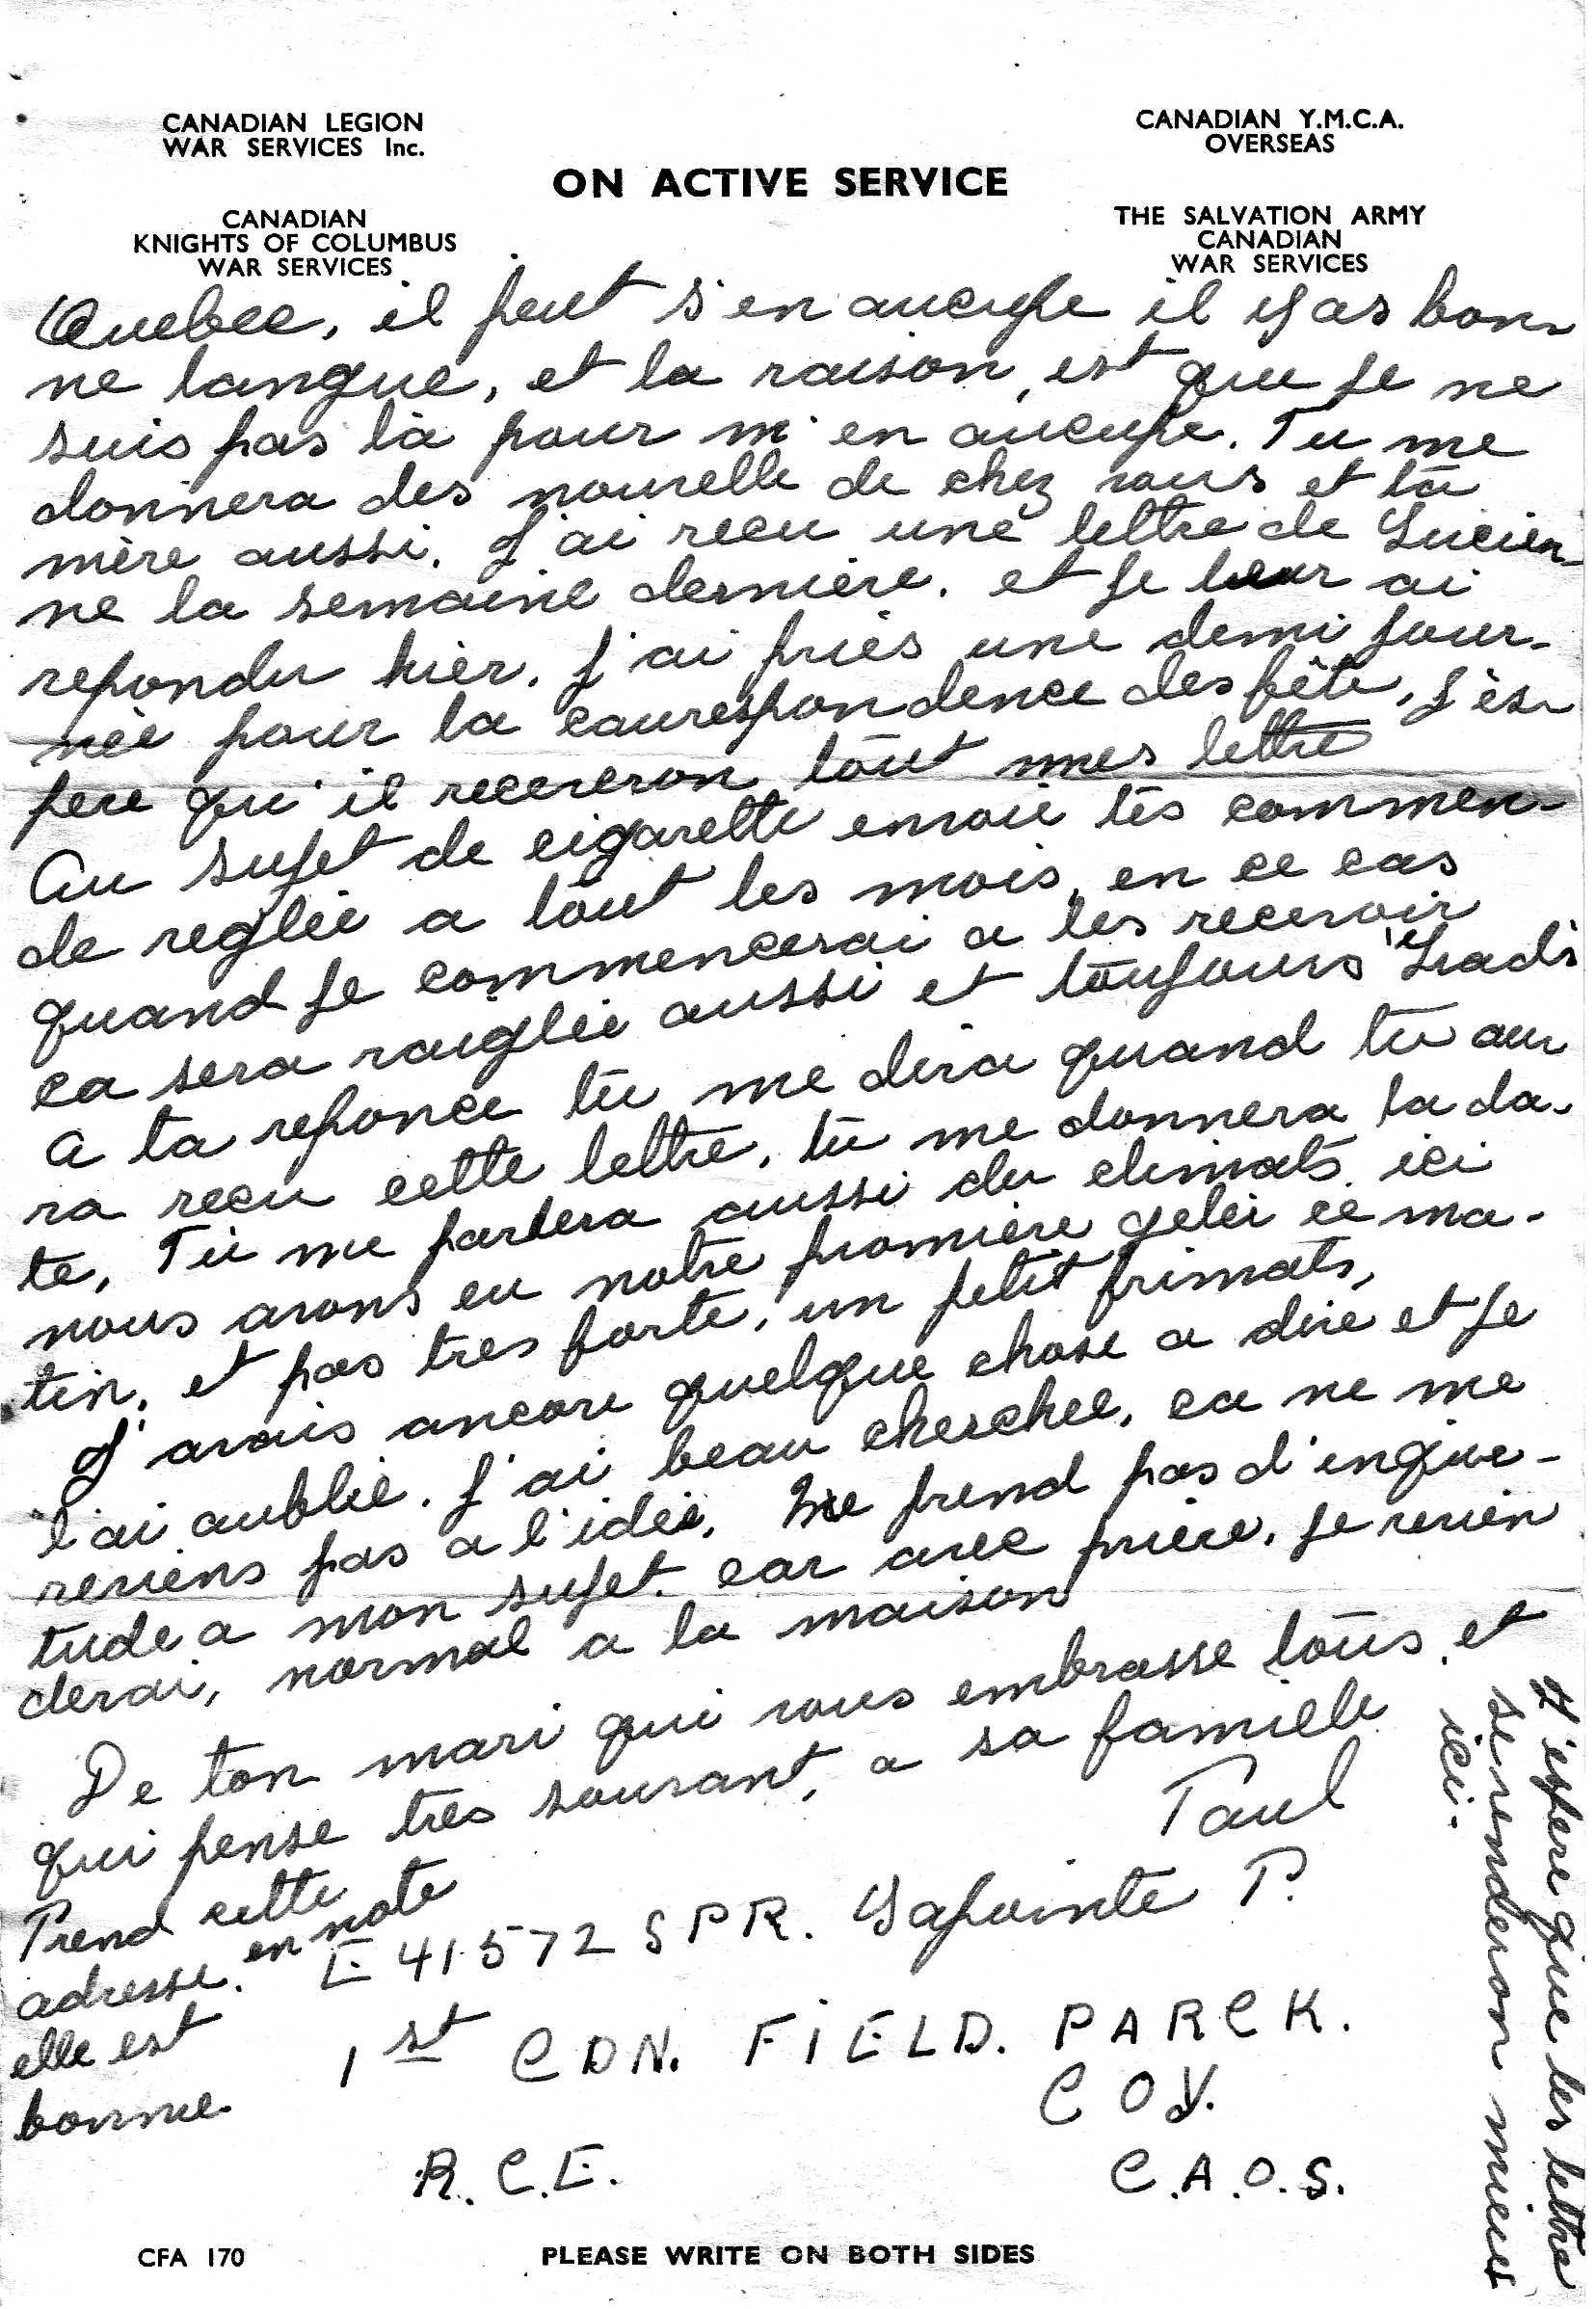 CANADIAN LEGION
WAR SERVICES Inc.
CANADIAN Y.M.C.A.
OVERSEAS
ON ACTIVE SERVICE
CANADIAN
KNIGHTS OF COLUMBUS
WAR SERVICES
THE SALVATION ARMY
CANADIAN
WAR SERVICES
Quebec, il peut s'en aucupe il y as bon-
ne langue, et la raison est que je ne
suis pas là pour m'en aucupe. Tu me
donnera des nouvelle de chez vous et ta
mère aussi. J'ai recu une lettre de Lucien-
ne la semaine dernière. et je leur ai
repondu hièr. J'ai priés une demi jour-
née pour la caurespondence des fête, j'ès-
pere qu'il receveron tout mes lettre
Au sujet de cigarette envoie tes commen-
de reglée a tout les mois, en ce cas
quand je commencerai a les recevoir
ca sera raiglée aussi et toujours
A ta reponce tu me dira quand tu au-
ra recu cette lettre, tu me donnera la da-
te, Tu me parlera aussi du climats. ici
nous avons eu notre promière gelée ce ma-
tin, et pas tres forte, un petit frimats,
J'avais ancore quelque chose a dire et je
l'ai aublié. J'ai beau cherchee, ca ne me
reviens pas a l'idée, Ne prend pas d'inquie-
tude a mon sujet. car avec prière, je revien
derai, normal a la maison
De ton mari qui vous embrasse tous et
qui pense très souvant, a sa famille
Paul
Prend cette
adresse. en note
elle est
bonne.
E 41572 SPR. Lapointe P.
1st CDN. FIELD. PARCK.
COY.
R.C.E. C.A.O.S.
J'espere que les lettre
se renderon mieus
ici.
CFA 170
PLEASE WRITE ON BOTH SIDES